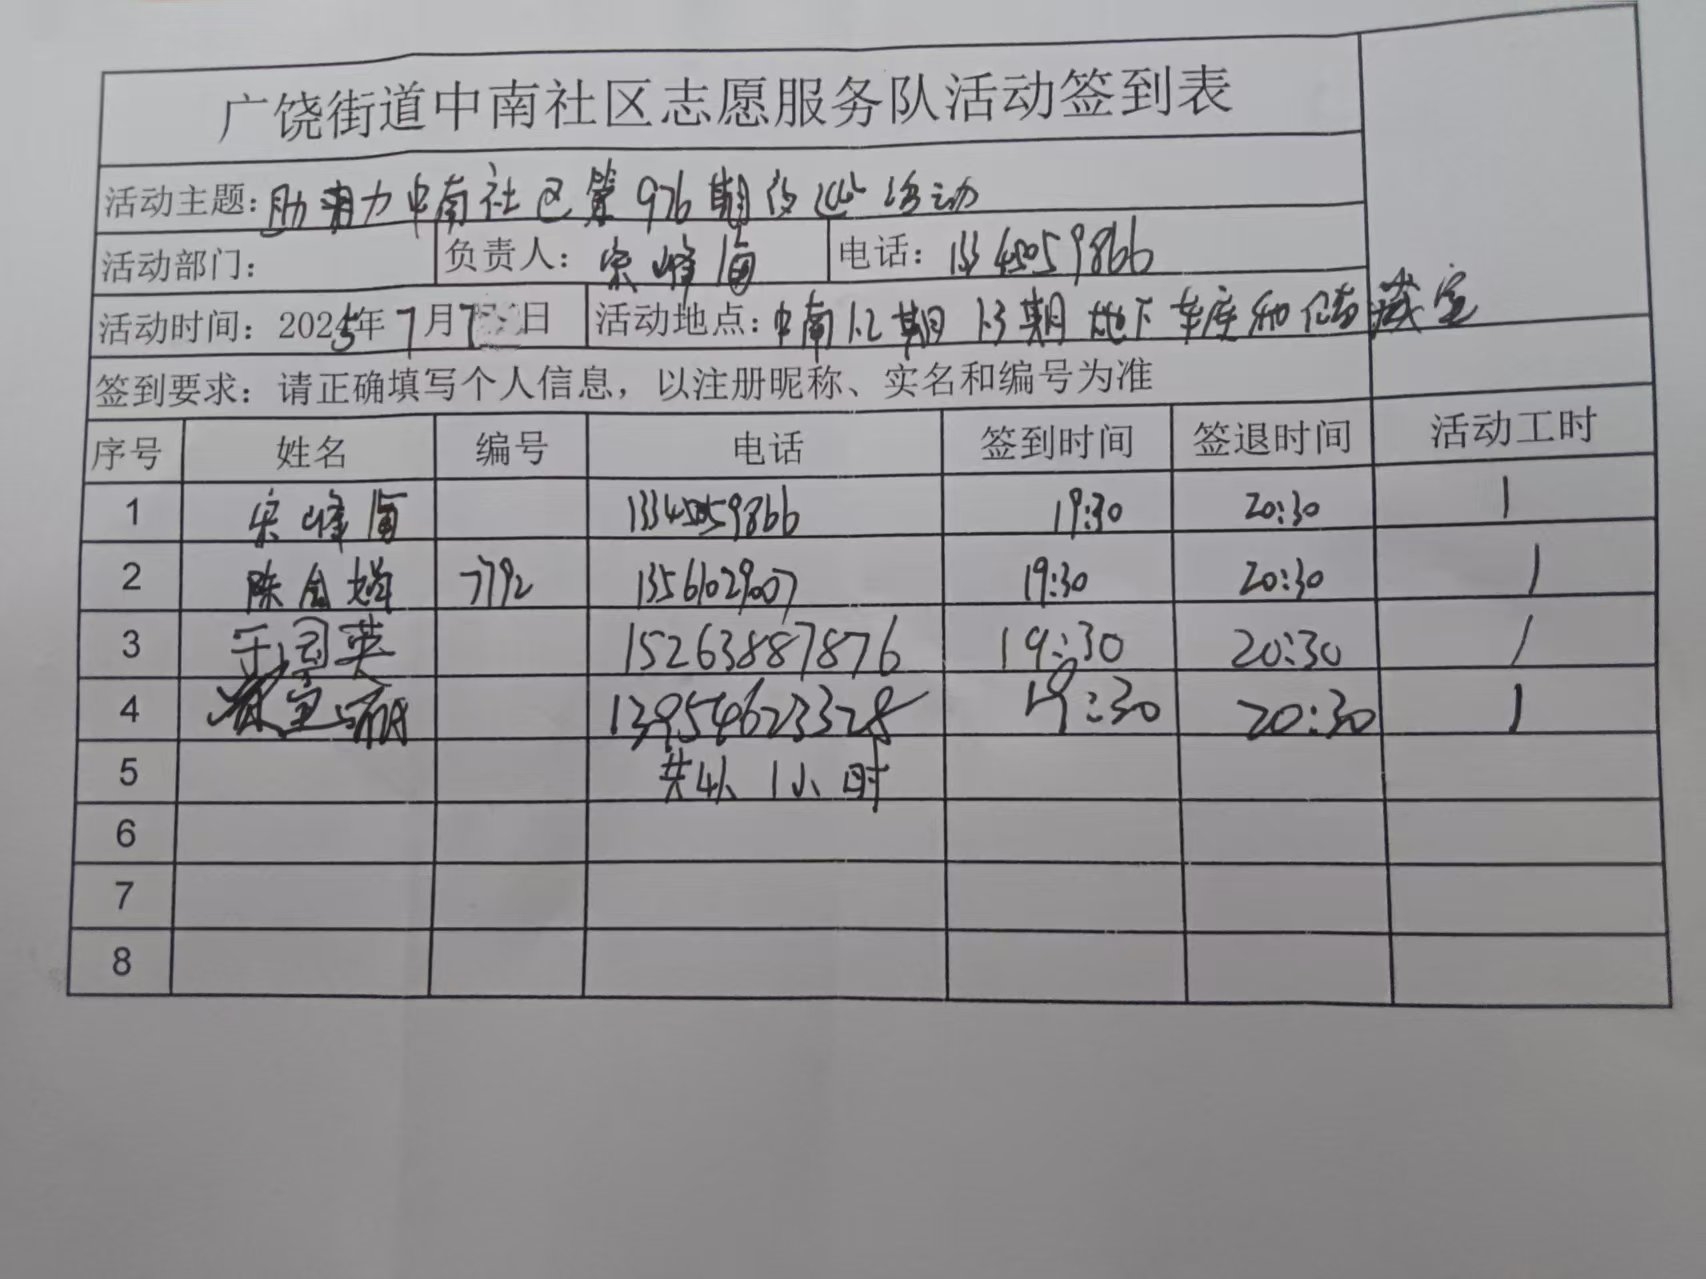 广饶街道中南社区志愿服务队活动签到表
活动主题: 助力中南社区第976期夜巡活动
活动部门: 负责人: 宋峰海 电话: 13345059866
活动时间: 2025年7月7日 活动地点: 中南1.2期1.3期地下车库和储藏室
签到要求: 请正确填写个人信息，以注册昵称、实名和编号为准
序号 姓名 编号 电话 签到时间 签退时间 活动工时
1 宋峰海 13345059866 19:30 20:30 1
2 陈金 7792 13561029007 19:30 20:30 1
3 英 15263887876 19:30 20:30 1
4 13954623328 19:30 20:30 1
5 共4人 1小时
6
7
8